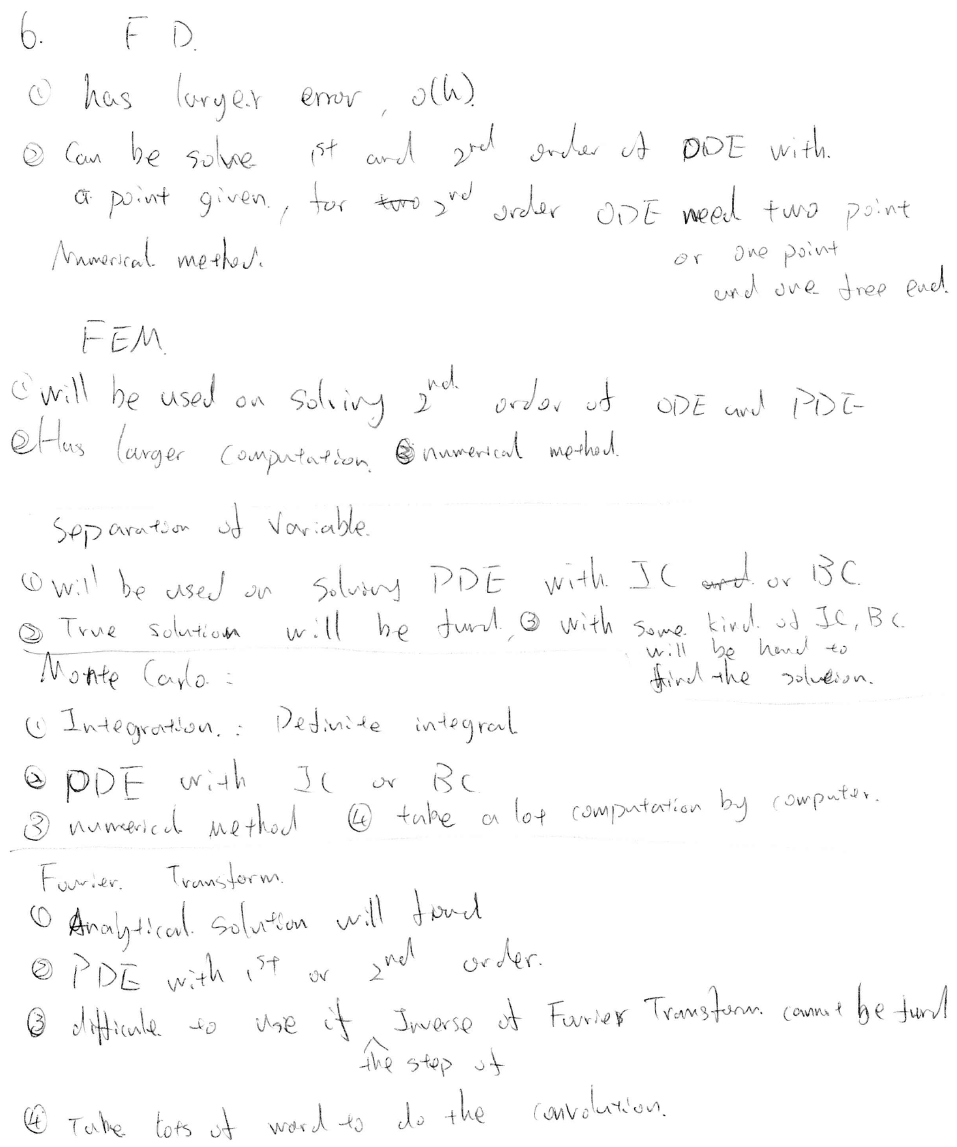 6. F D.
① has larger error, o(h)
② Can be solve 1st and 2nd order of ODE with.
a point given, for two 2nd order ODE need two point
or one point
and one free end.
Numerical method.
FEM.
① will be used on solving 2nd order of ODE and PDE
② Has larger computation. ③ numerical method.
Separation of Variable.
① will be used on solving PDE with IC and or BC.
② True solution will be fund, ③ with some kind of IC, BC.
will be hard to
find the solution.
Monte Carlo:
① Integration. : Definite integral
② PDE with IC or BC
③ numerical method ④ take a lot computation by computer.
Fourier. Transform.
① Analytical solution will found
② PDE with 1st or 2nd order.
③ difficule to use if Inverse of Fourier Transform cannot be fund
the step of
④ Take lots of word to do the convolution.